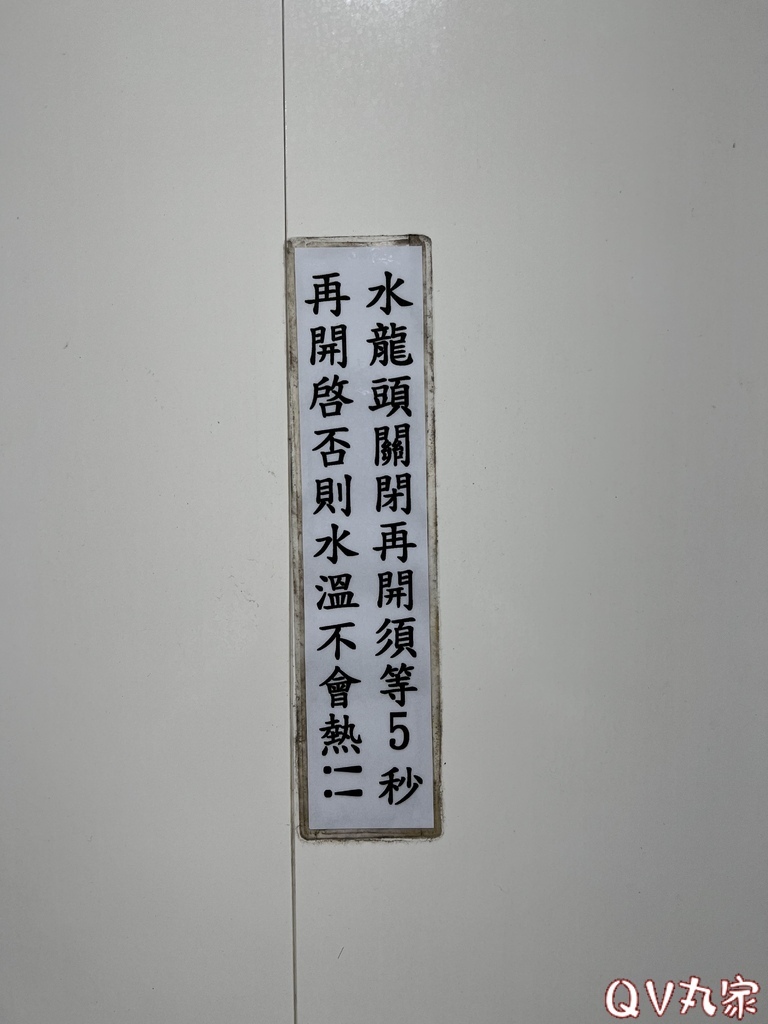 水龍頭關閉再開須等5秒
再開啓否則水溫不會熱!!
QV丸家